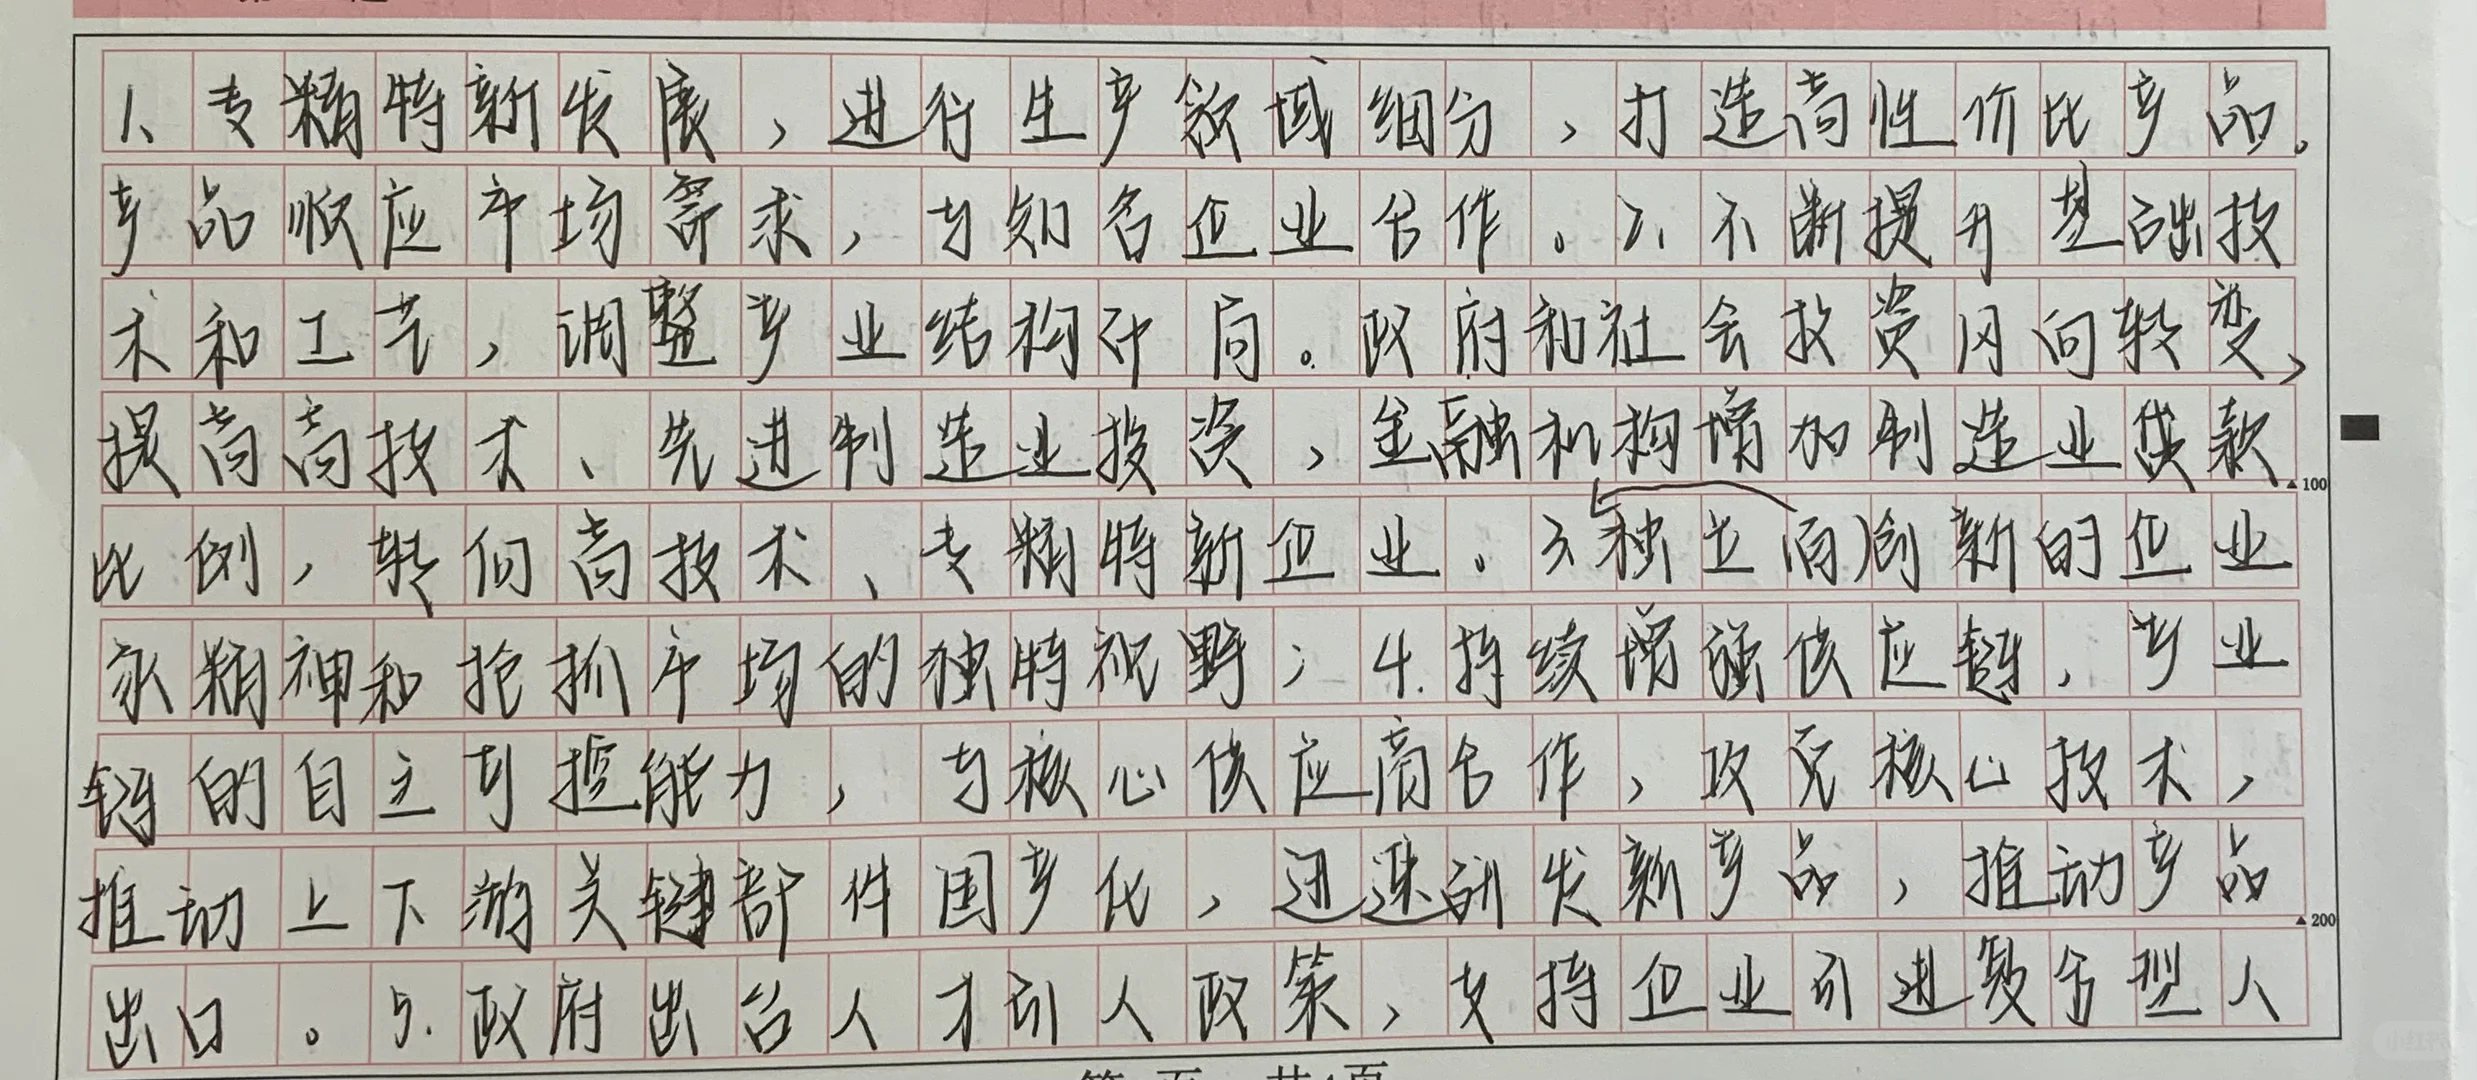 1、专精特新发展，进行生产领域细分，打造高性价比产品。
产品顺应市场需求，与知名企业合作。2、不断提升基础技
术和工艺，调整产业结构布局。政府和社会投资风向转变，
提高高技术、先进制造业投资，金融机构增加制造业贷款
▲100
比例，转向高技术、专精特新企业。3、独立向创新的企业
家精神和抢抓市场的独特视野；4.持续增强供应链，产业
链的自主可控能力，与核心供应商合作，攻克核心技术，
推动上下游关键部件国产化，迅速研发新产品，推动产品
▲200
出口。5.政府出台人才引人政策，支持企业引进复合型人